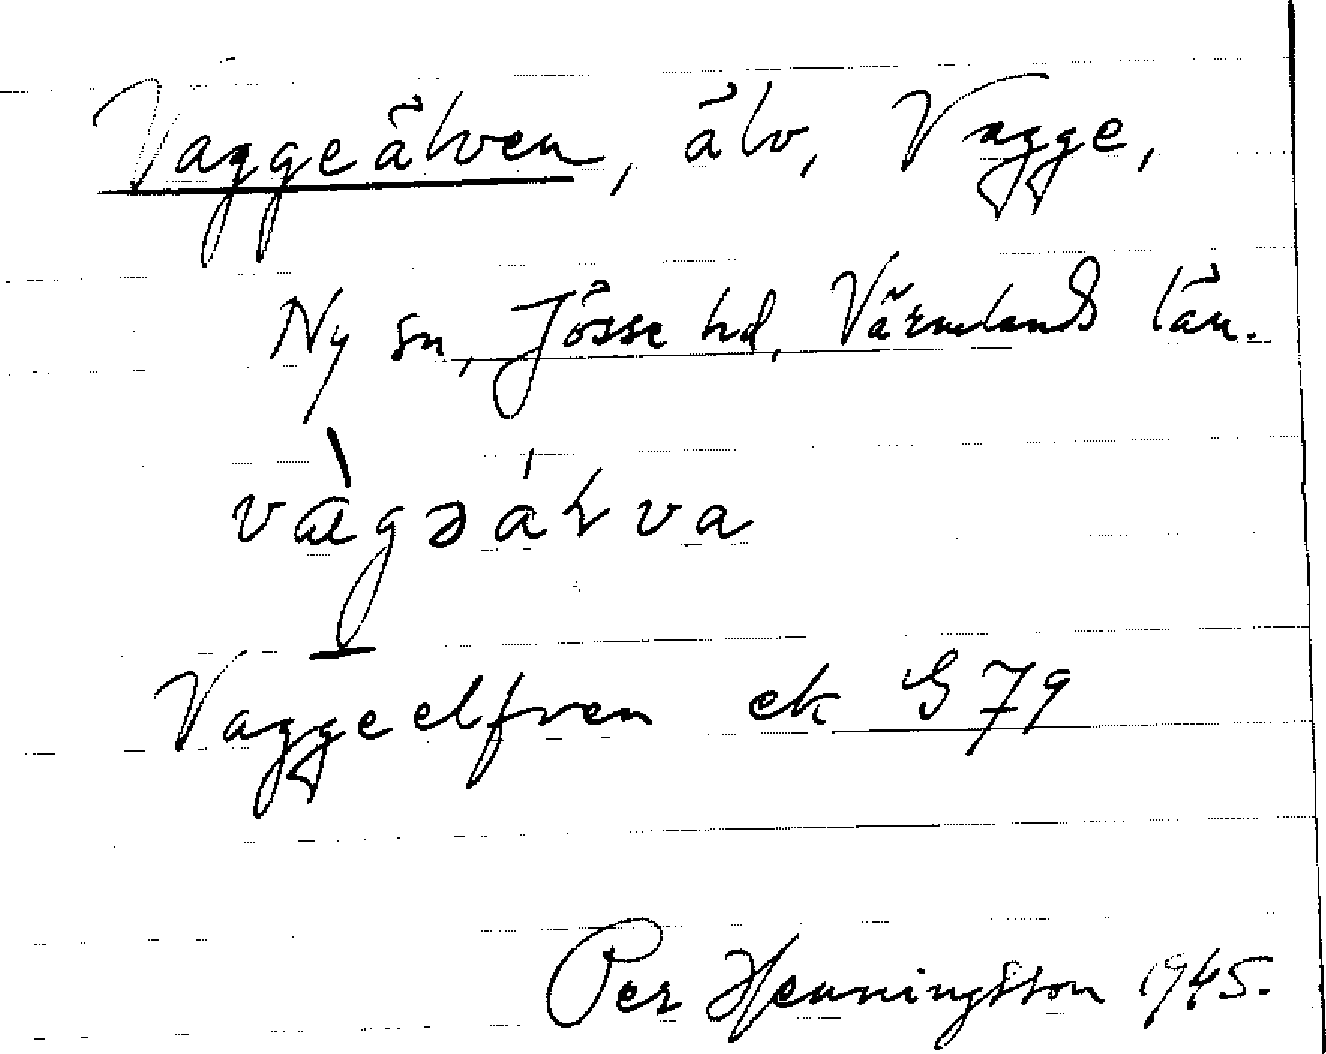 Vaggeälven, älv, Vagge,
Ny sn, Jösse hd, Värmlands län.
vàgəáɽva
Vaggeelfven ek G 79
Per Henningsson 1945.